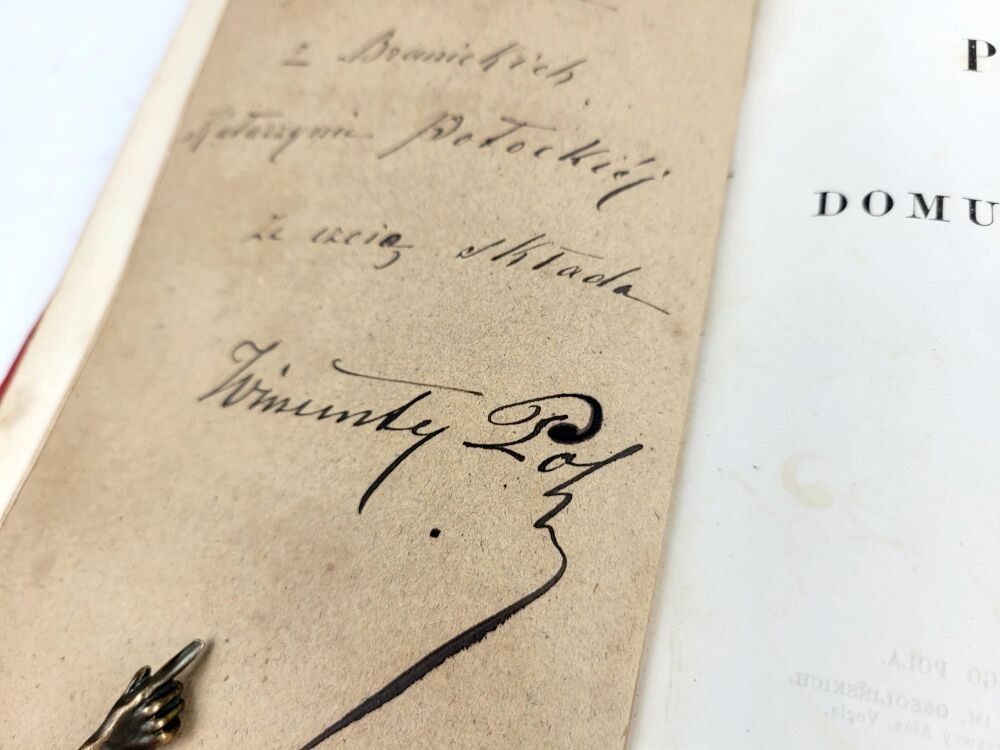 z Branickich
Katarzynie Potockiéj
ze czcią składa
Wincenty Pol
P
DOMU
GO POLA.
IM. OSSOLIŃSKICH.
Alex. Vogla.